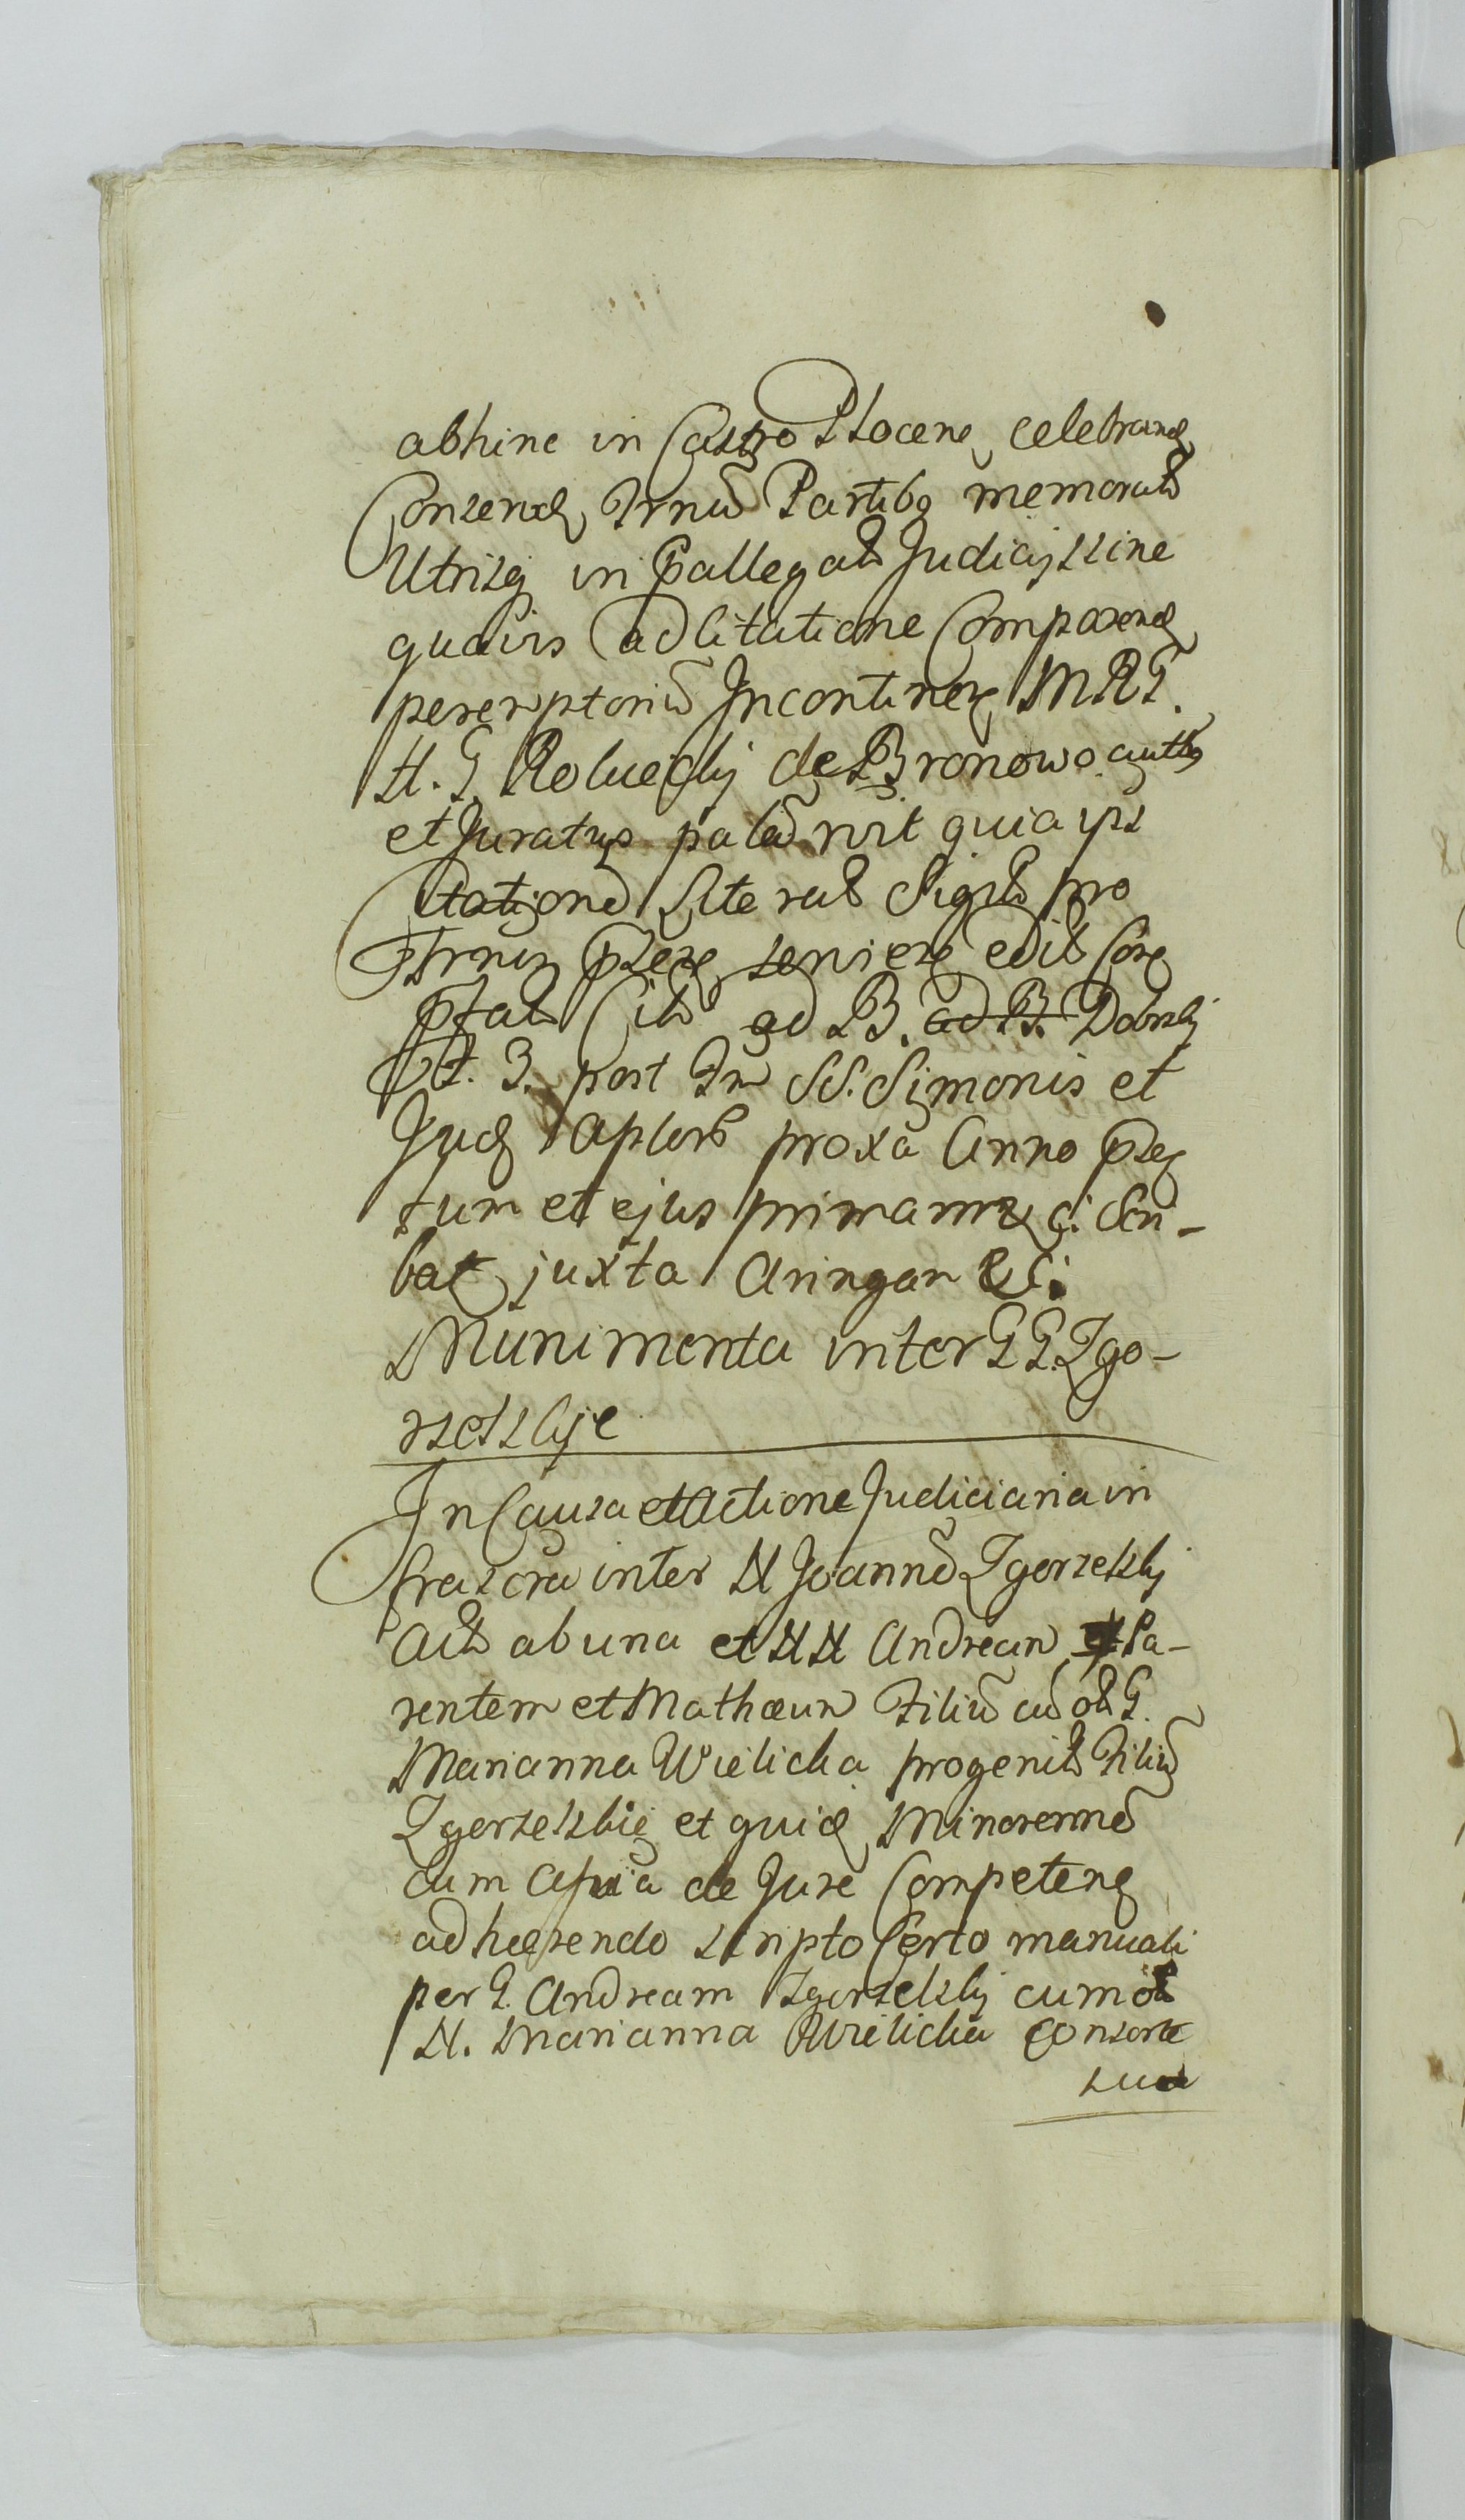 abhinc in Castro Plocen celebrand
Conservat Trnū Partibq memorat
Utrisq in pallegat Judicijs sine
quavis adcitatione Comparend
peremptoriū Incontinen MRG.
N. G. Rolwejski de Bronowo autts
et Juratus palā rvit quia ips
Citationē Literal Sigilt pro
Trnis psen servien edit Corg
pfat Cit ad B. ad B. Dobrski
f. 3. post Fm SS. Simonis et
Jud Aplorū proxa Anno psen
tum et ejus primam &c. Scri-
bat juxta Aringam &c.
Munimenta inter GG. Zgo-
rzelskije
In Causa et Actione Judiciaria in
frascra inter N Joannē Zgorzelski
Act ab una et NN Andream Pa-
rentem et Mathæum Filiū cū ol G.
Marianna Wielicka progenit Filiū
Zgorzelskie et quid Minorennē
cum assia de Jure Competen
adhærendo scripto Certo manuali
per G. Andream Zgorzelski cum ol
N. Marianna Wielicka Consorte
sua